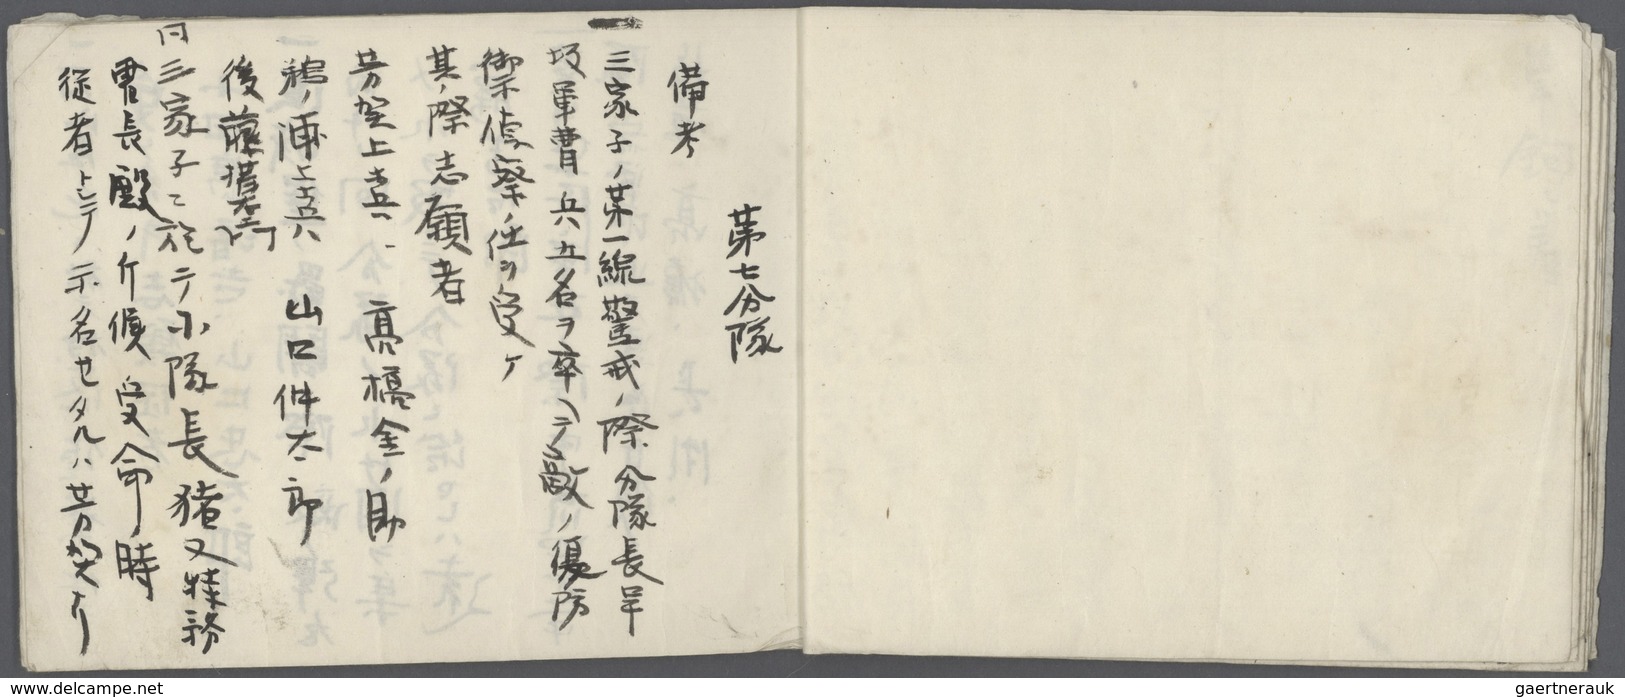 第七分隊
備考
三家子ノ第一線警戒ノ際分隊長早
坂軍曹兵五名ヲ卒ヘテ敵ノ
御偵察ノ任ヲ受ケ
其ノ際志願者
芳賀上喜八、高橋金ノ助
鵜ノ浦上喜八 山口仲太郎
後藤
同三家子ニ於テ小隊長猪又特務
曹長殿ノ斥候受命ノ時
従者トシテノ示名セタルハ芳賀ナリ
www.delcampe.net
gaertnerauk